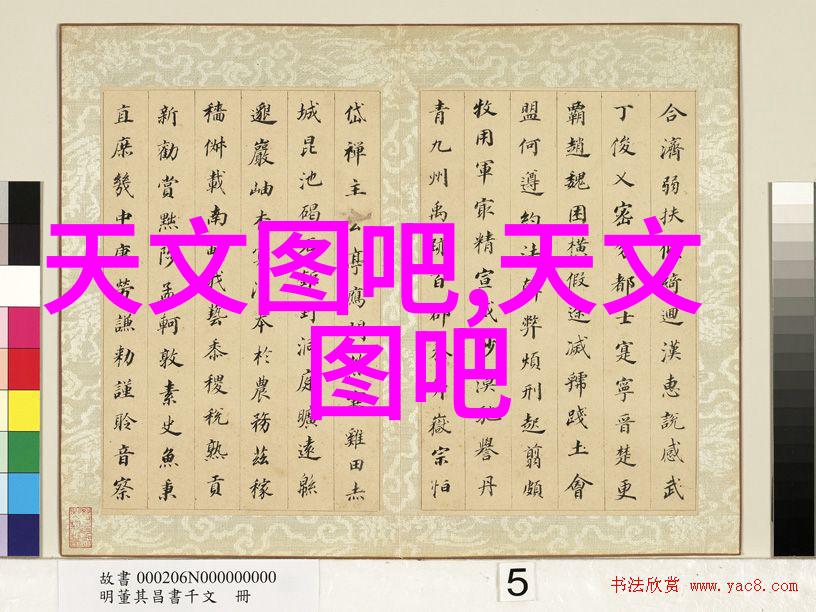 天文图吧,天文
图吧
合濟弱扶綺迴漢惠說感武
丁俊乂密士寔寧晉楚更
霸趙魏困橫假途滅虢踐土會
盟何遵約法弊煩刑起翦頗
牧用軍最精宣威沙漠馳譽丹
青九州禹跡百郡嶽宗恒
岱禪主云亭雞田赤
城昆池碣石洞庭曠遠緜
邈巖岫杳本於農務茲稼
穡俶載南畝我藝黍稷稅熟貢
新勸賞黜陟孟軻敦素史魚秉
直庶幾中庸勞謙勑謹聆音察
故書 000206N000000000
明董其昌書千文 冊
5
书法欣赏 www.yac8.com